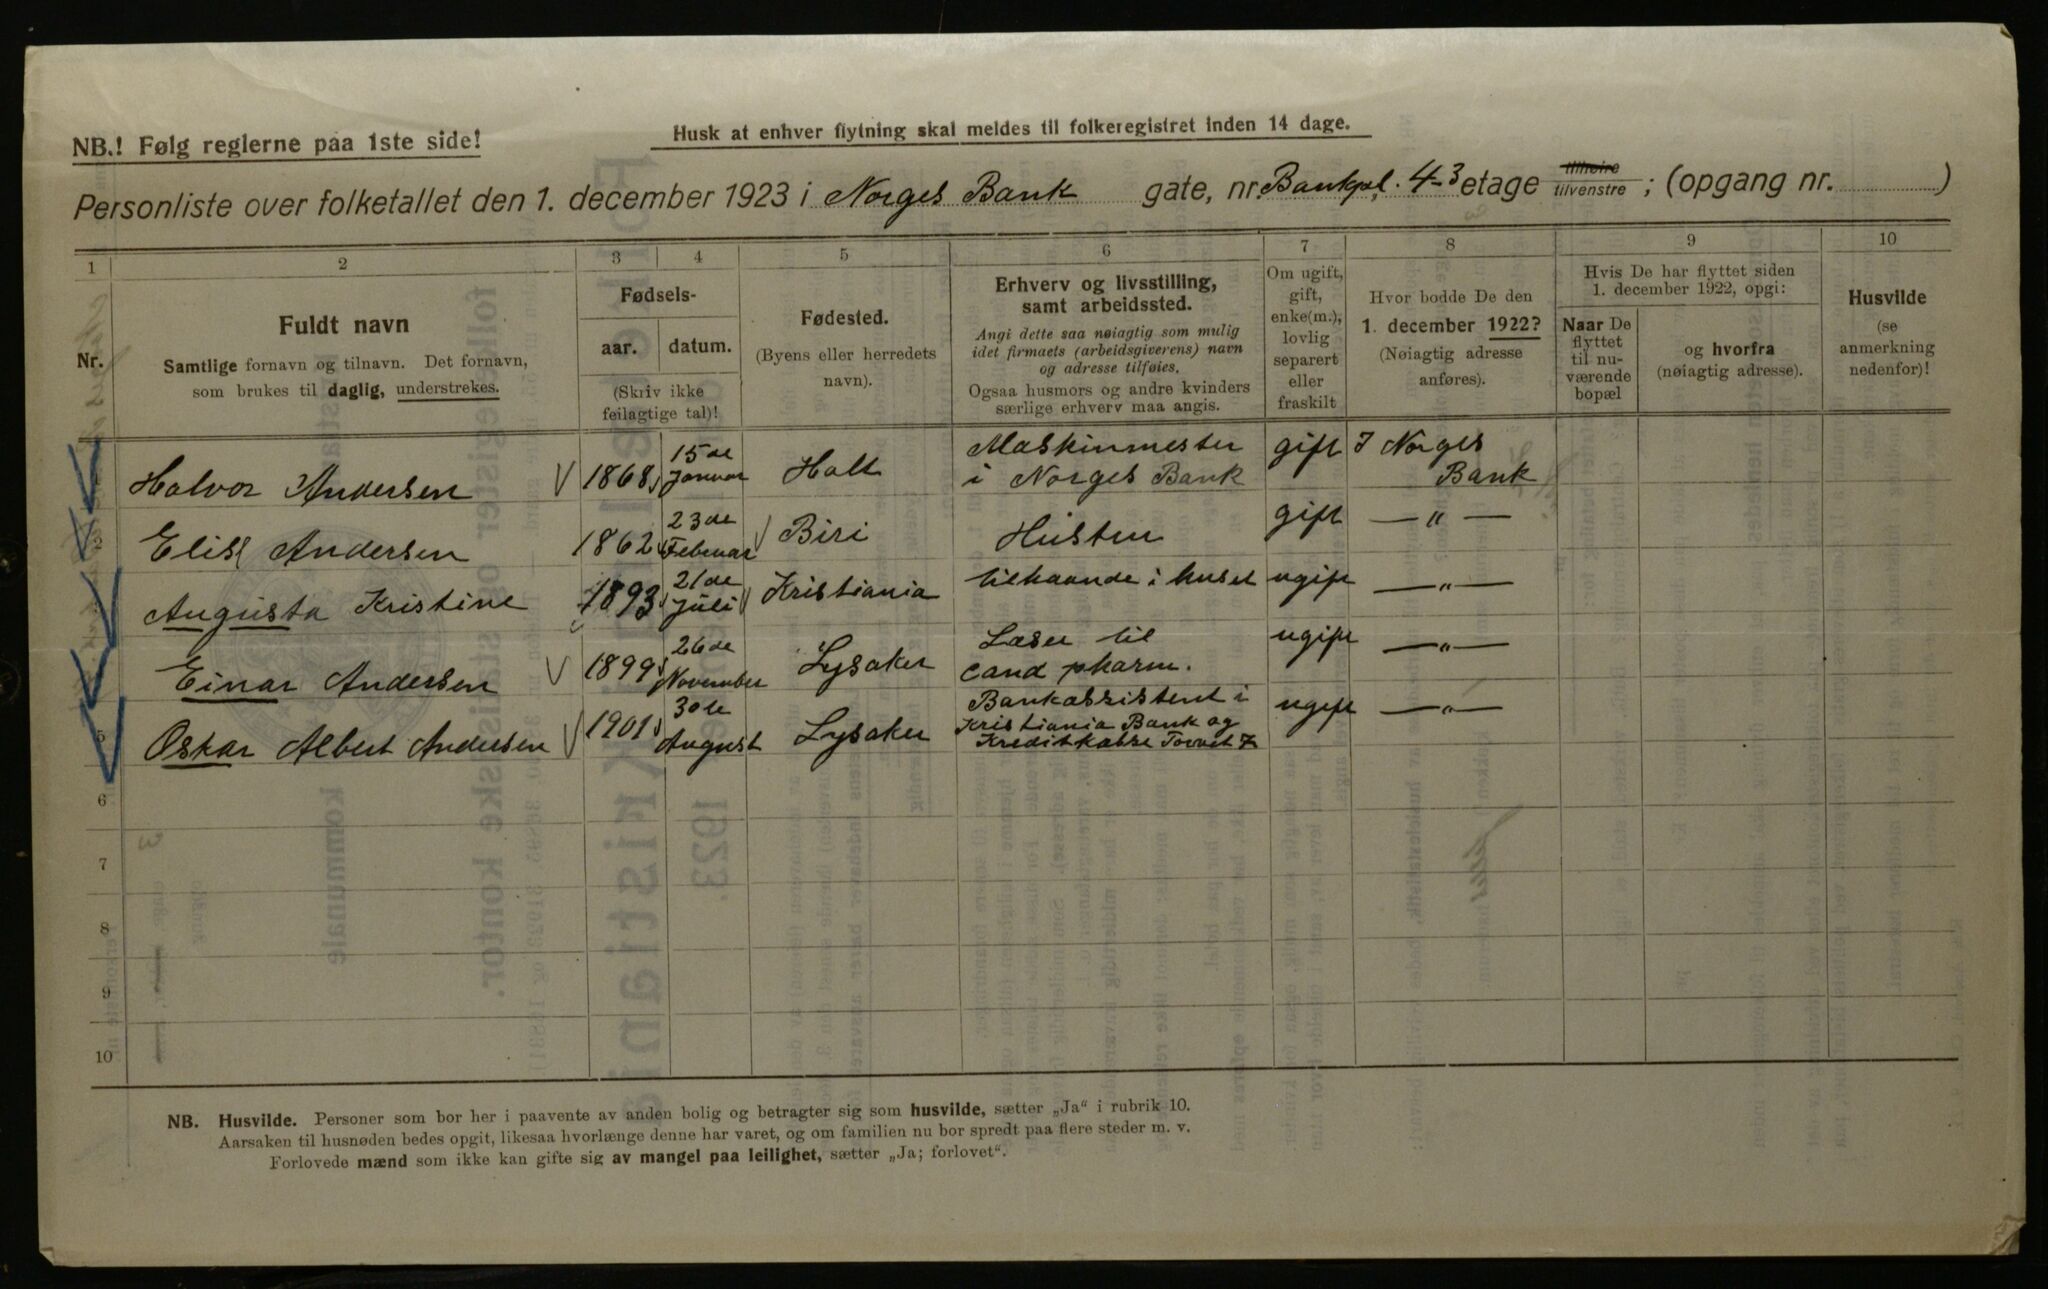 NB.! Følg reglerne paa 1ste side!
Husk at enhver flytning skal meldes til folkeregistret inden 14 dage.
Personliste over folketallet den 1. december 1923 i Norges Bank gate, nr. Bankpl. 4 - 3 etage tilhøire tilvenstre ; (opgang nr. )
1 2 3 4 5 6 7 8 9 10
Nr.
Fuldt navn
Samtlige fornavn og tilnavn. Det fornavn,
som brukes til daglig, understrekes.
Fødsels-
aar. datum.
(Skriv ikke
feilagtige tal)!
Fødested.
(Byens eller herredets
navn).
Erhverv og livsstilling,
samt arbeidssted.
Angi dette saa nøiagtig som mulig
idet firmaets (arbeidsgiverens) navn
og adresse tilføies.
Ogsaa husmors og andre kvinders
særlige erhverv maa angis.
Om ugift,
gift,
enke(m.),
lovlig
separert
eller
fraskilt
Hvor bodde De den
1. december 1922?
(Nøiagtig adresse
anføres).
Hvis De har flyttet siden
1. december 1922, opgi:
Naar De
flyttet
til nu-
værende
bopæl
og hvorfra
(nøiagtig adresse).
Husvilde
(se
anmerkning
nedenfor)!
Halvor Andersen 1868 15de Januar Holt Maskinmester i Norges Bank gift I Norges Bank
2 Elise Andersen 1862 23de Februar Biri Hustru gift — " —
Augusta Kristine 1893 21de Juli Kristiania tilhaande i huset ugift — " —
Einar Andersen 1899 26de November Lysaker Læser til cand pharm. ugift — " —
5 Oskar Albert Andersen 1901 30te August Lysaker Bankassistent i Kristiania Bank og Kreditkasse Torvet 7 ugift — " —
6
7
8
9
10
NB. Husvilde. Personer som bor her i paavente av anden bolig og betragter sig som husvilde, sætter „Ja“ i rubrik 10.
Aarsaken til husnøden bedes opgit, likesaa hvorlænge denne har varet, og om familien nu bor spredt paa flere steder m. v.
Forlovede mænd som ikke kan gifte sig av mangel paa leilighet, sætter „Ja; forlovet“.